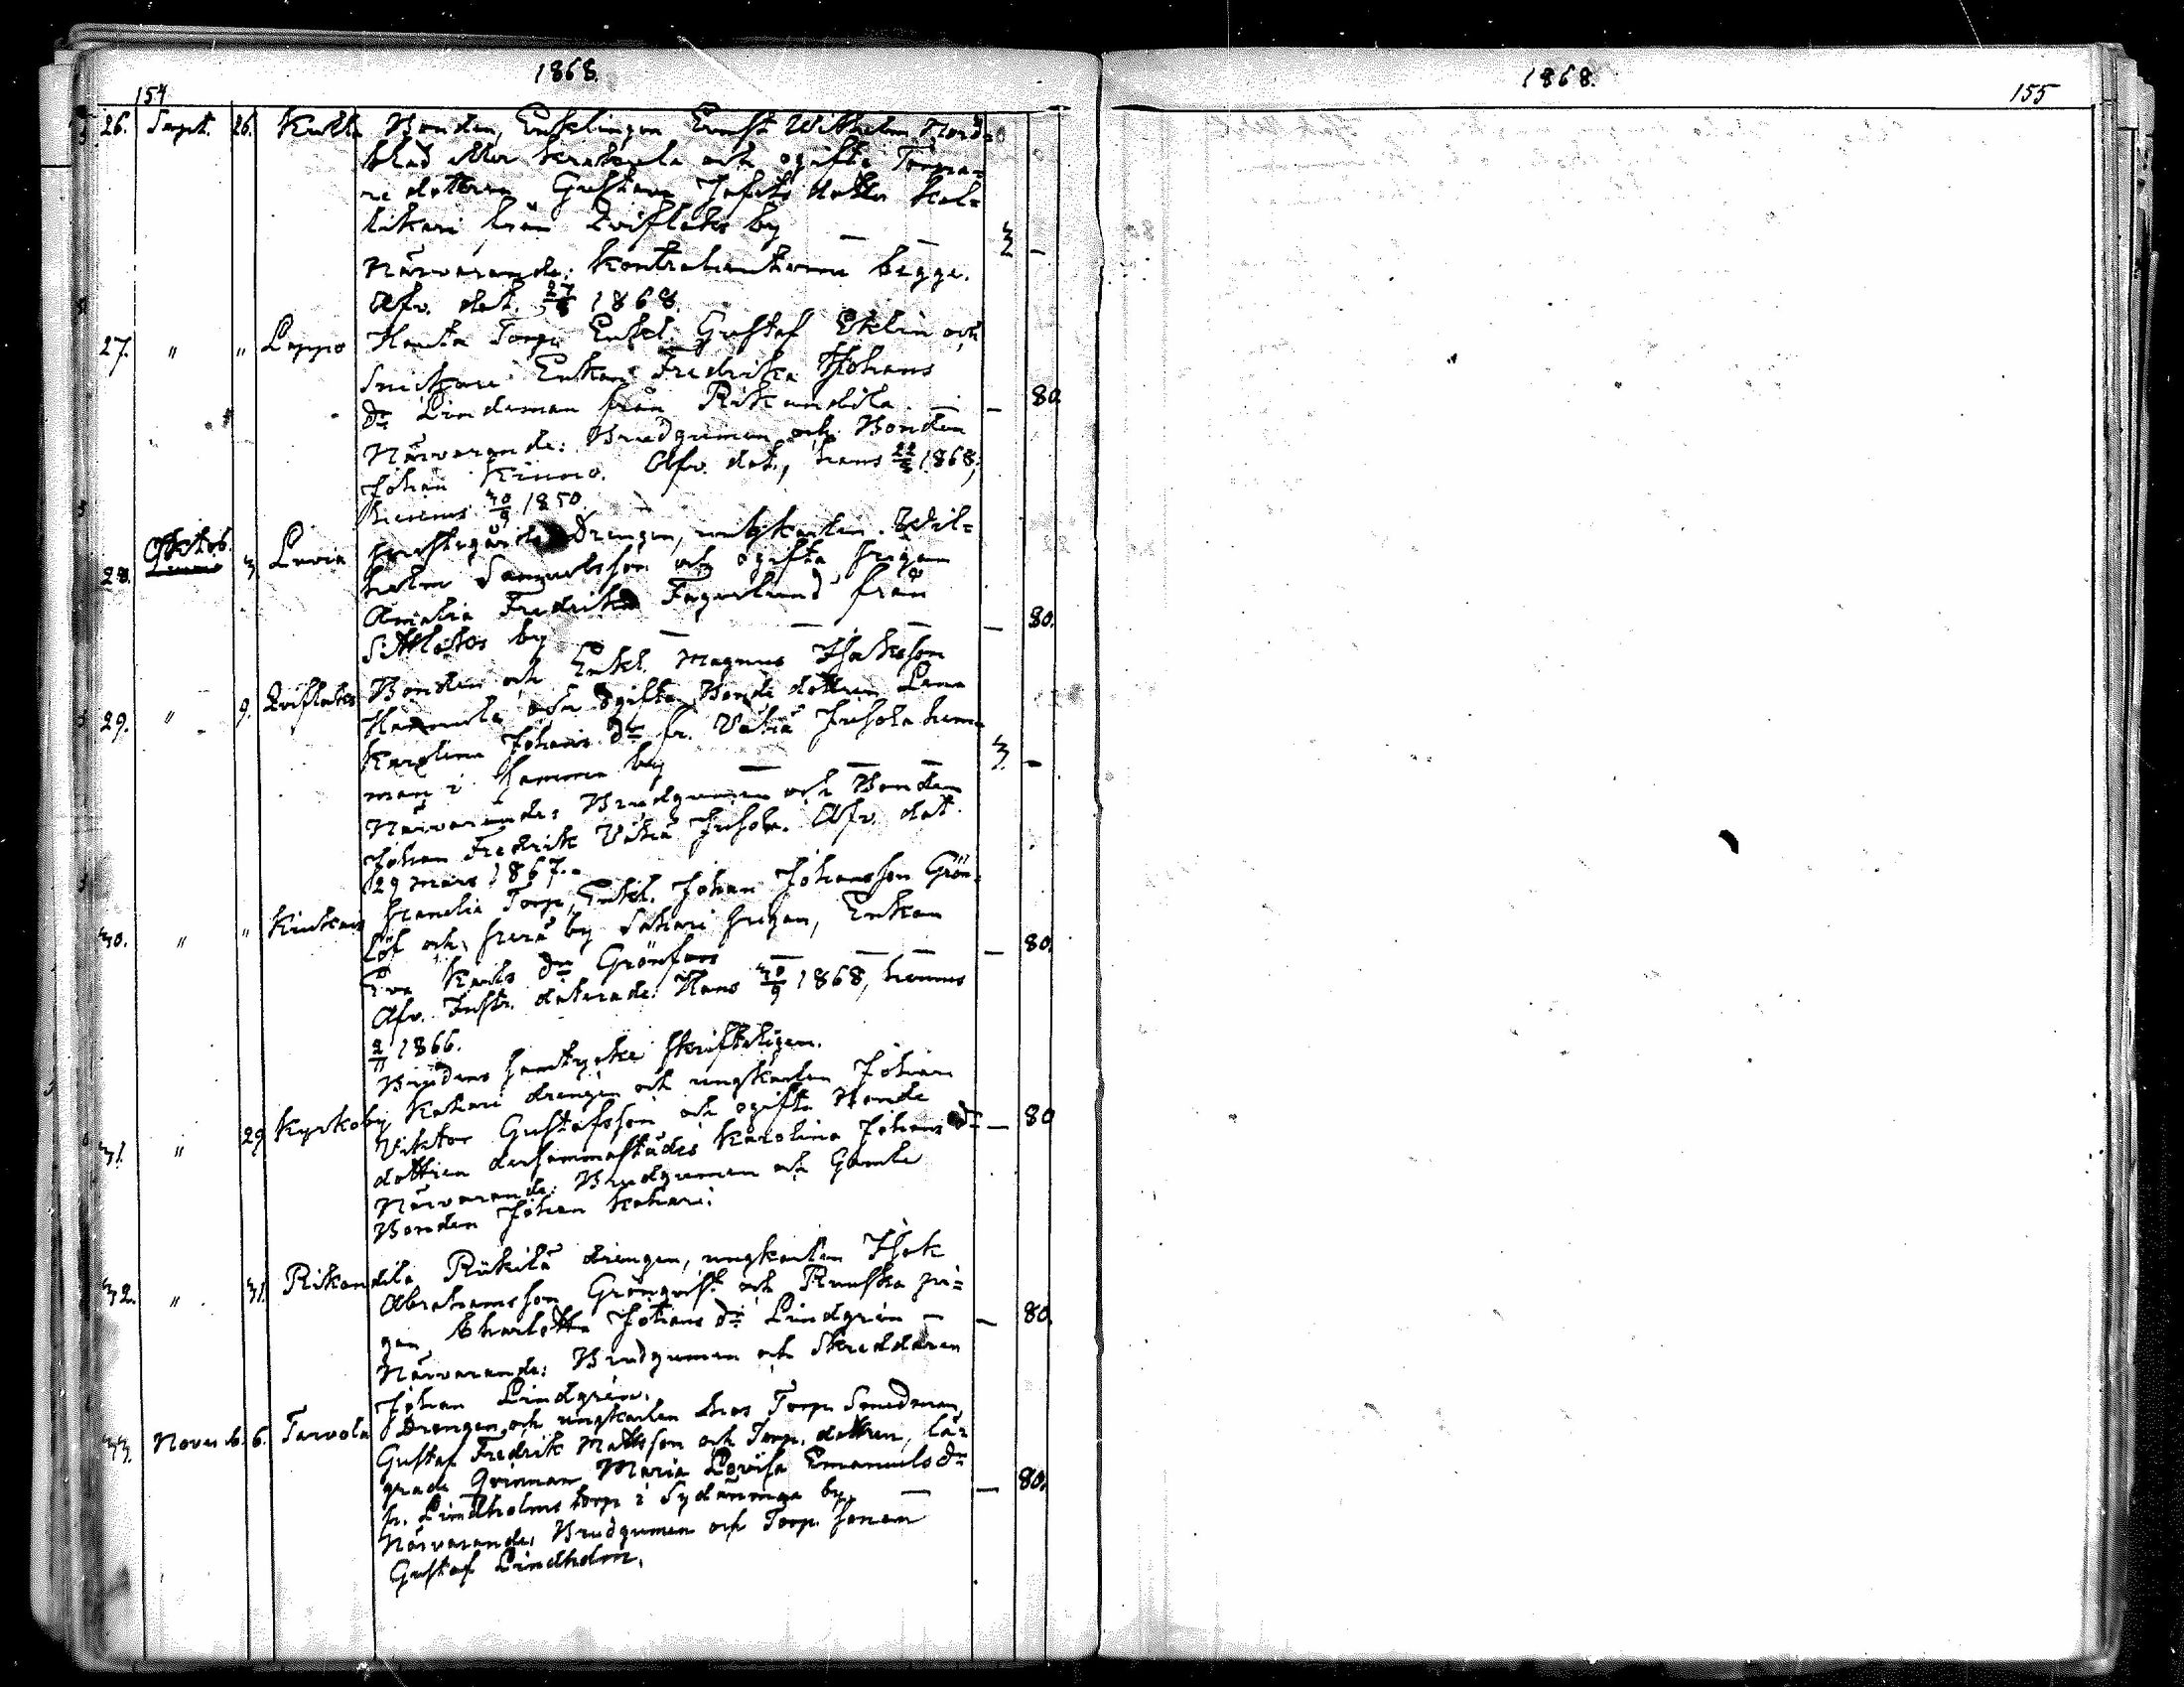 1868.
154
26. Sept. 26. Kulla Bonden, Enklingen Ernst Wilhelm Nord=
blad eller Krakoula och ogifta Torpa=
re dottren Gustava Josefs dotter Kal=
likari från Qviflaks by — — 3 —
Närvarande: Kontrahenterne begge.
Afv. dat. 27/8 1868.
27. " " Leppo Hanta Torp. Enkl. Gustaf Eklin och
Snickare Enkan Fredrika Johans
dr Lindeman från Rikandila. — — 80.
Närvarande: Brudgumen och Bonden
Johan Kinno. Afv. dat., hans 22/3 1868,
hennes 30/9 1850.
28. Oktob. 3. Luvia Prestegårds Drengen, ungkarlen Wil=
helm Samuelsson och ogifta pigan
Amalia Fredrika Fagerlund från
Sittlaks by — — — — 80.
29. " 9. Qviflaks Bonden och Enkl. Magnus Isaksson
och ogifta Bonde dottren Lena
Karolina Johans dr fr. Vähä Juhola hem=
man i samma by — — — 3. —
Närvarande: Brudgumen och Bonden
Johan Fredrik Vähä Juhola. Afv. dat.
29 Mars 1867.-
30. " " Kiukais Torp, Enkl. Johan Johansson Grön=
löf och by Sahari pigan, Enkan
Eva Karls dr Grönfors — — — 80.
Afv. Instr. daterade: Hans 30/9 1868, hennes
2/11 1866.
Brudens samtycke skrifteligen.
31. " 29 Kyrkoby Kahari drengen och ungkarlen Johan
Viktor Gustafsson och ogifta Bonde
dottren dersammastädes Karolina Johans dr — 80
Närvarande: Brudgumen och Gamle
Bonden Johan Kahari.
32. " 31. Rikandila Riikilä drengen, ungkarlen Isak
Abrahamsson Grönqvist och Runska pi=
gan Charlotta Johans dr Lindgrén — — 80.
Närvarande: Brudgumen och Skreddaren
Johan Lindgrén.
33. Novemb. 6. Tarvola Drengen och ungkarlen hos Torp. Smedman,
Gustaf Fredrik Mattsson och Torp. dottren, lä=
grade Qvinnan Maria Lovisa Emanuels dr
fr. Lindholms torp i Sydänmaa by. — — 80.
Närvarande: Brudgumen och Torp. sonen
Gustaf Lindholm.
1868.
155